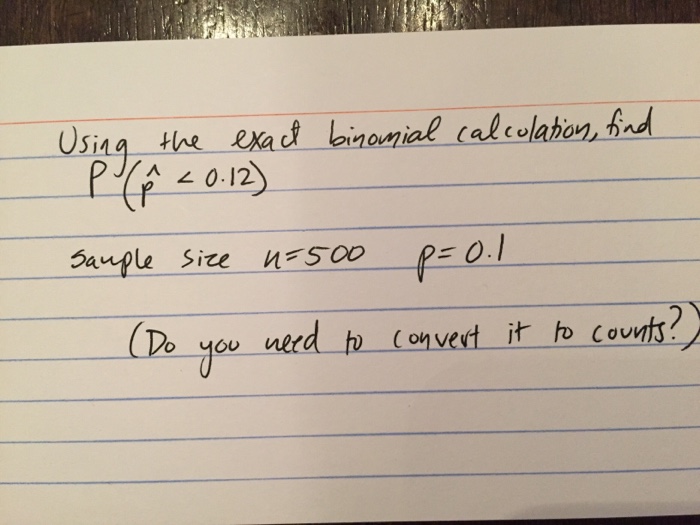 Using the exact binomial calculation, find
P(p̂ < 0.12)
Sample size n=500 p=0.1
(Do you need to convert it to counts?)